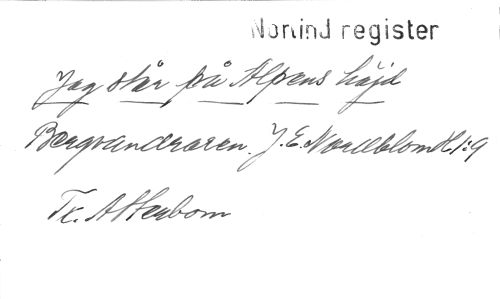 Norlind register
Jag står på Alpens höjd
Bergvandraren. J. E. Nordblom H. 1:9
Tx. Atterbom